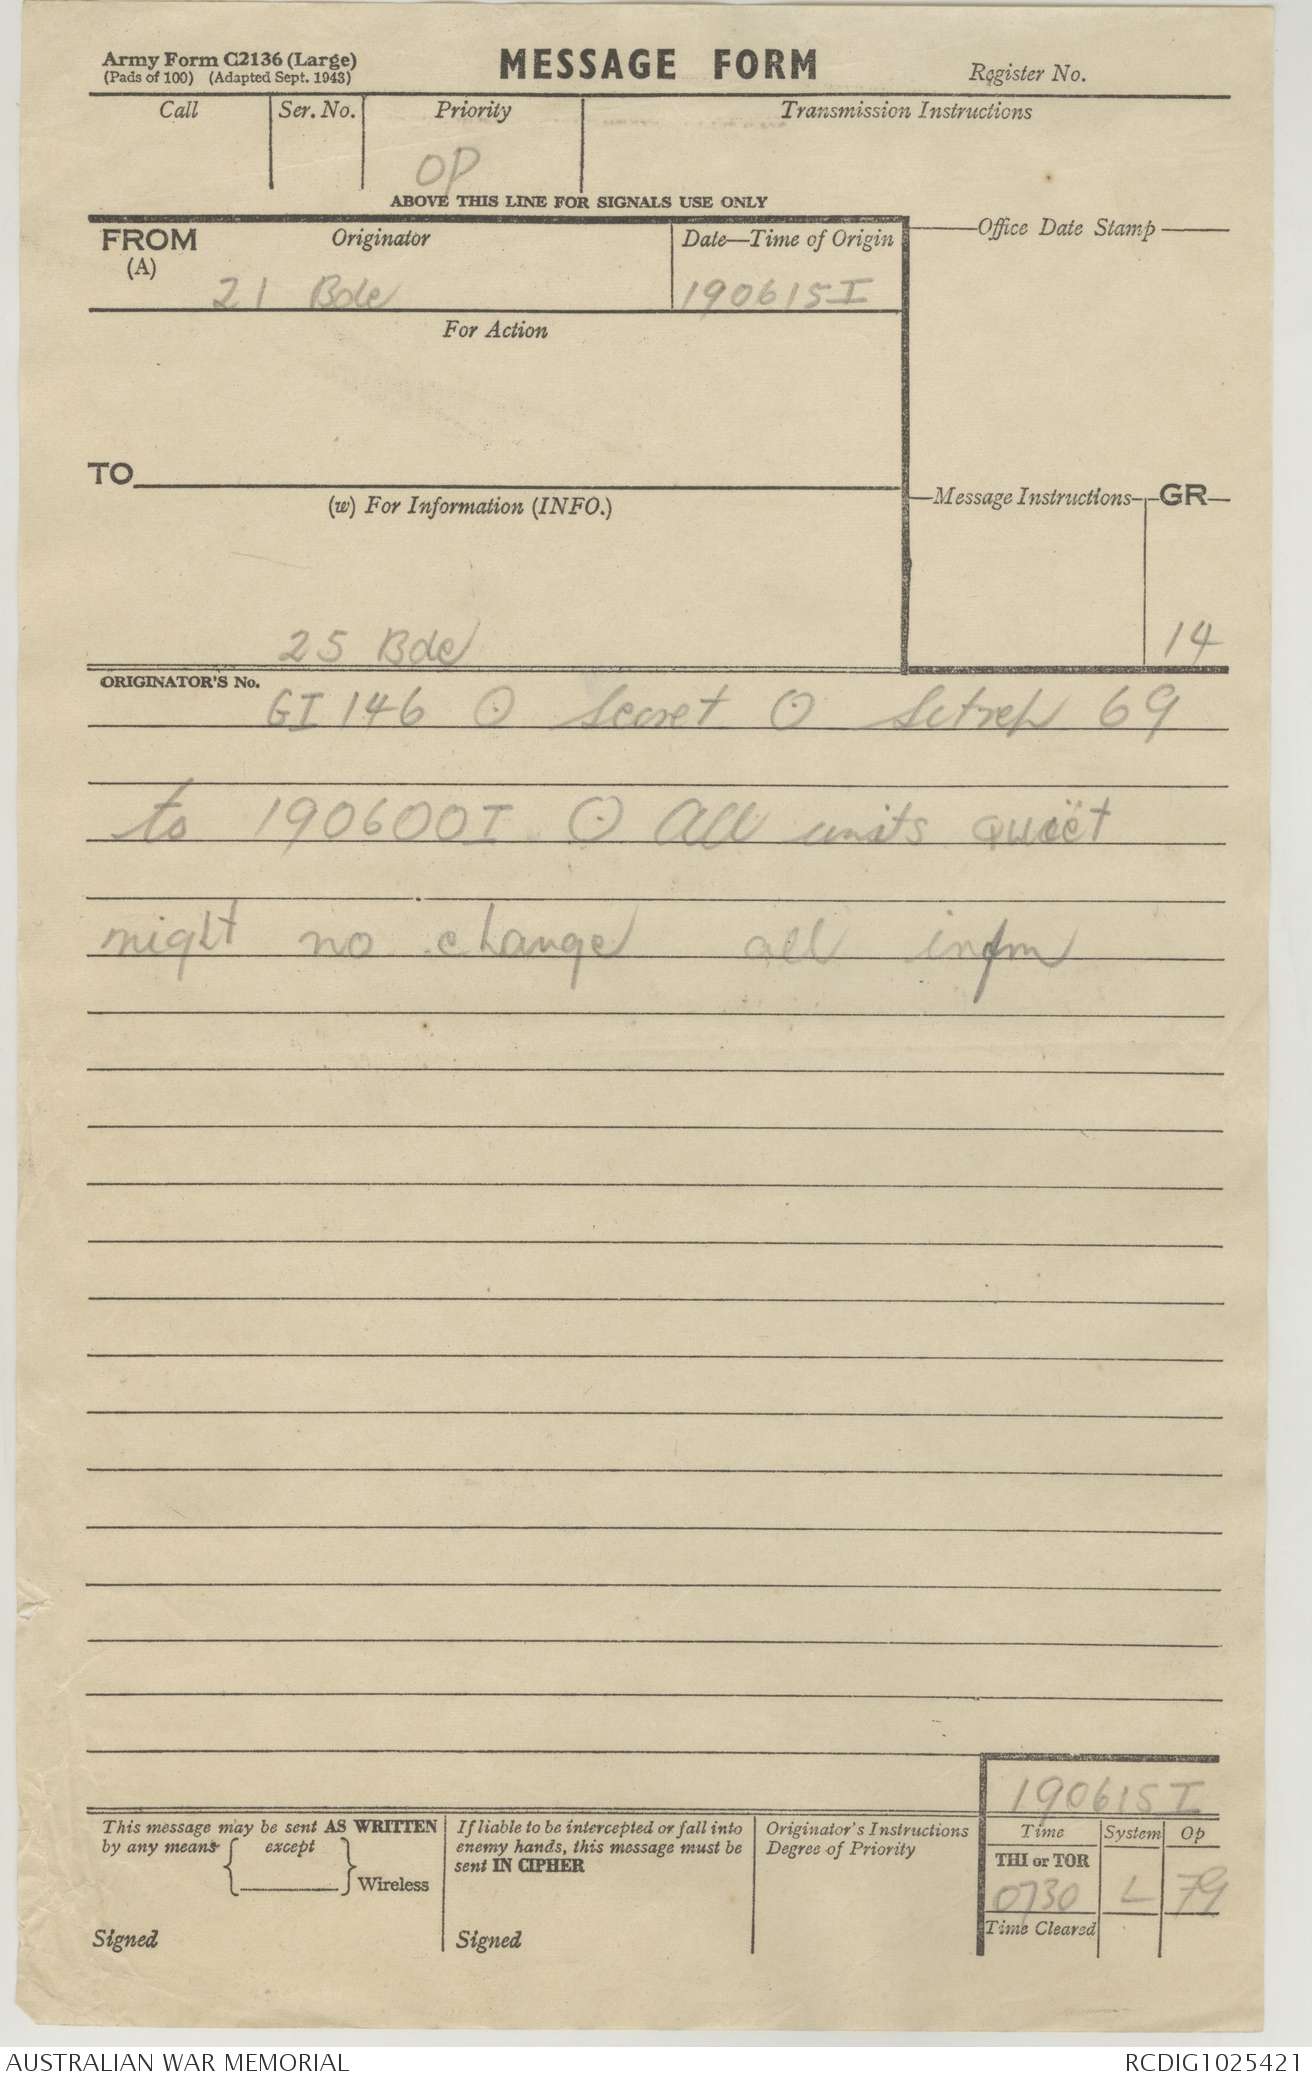 Army Form C2136 (Large)
(Pads of 100) (Adapted Sept. 1943)
MESSAGE FORM
Register No.
Call
Ser. No.
Priority
Transmission Instructions
OP
ABOVE THIS LINE FOR SIGNALS USE ONLY
FROM
(A)
Originator
Date—Time of Origin
Office Date Stamp
21 Bde
190615I
For Action
TO
(w) For Information (INFO.)
Message Instructions
GR
25 Bde
14
ORIGINATOR'S No.
GI 146 O Secret O Sitrep 69
to 190600I O All units quiet
night no change all infm
190615I
This message may be sent AS WRITTEN
by any means except
Wireless
Signed
If liable to be intercepted or fall into
enemy hands, this message must be
sent IN CIPHER
Signed
Originator's Instructions
Degree of Priority
Time System Op
THI or TOR
0730 L 79
Time Cleared
AUSTRALIAN WAR MEMORIAL
RCDIG1025421